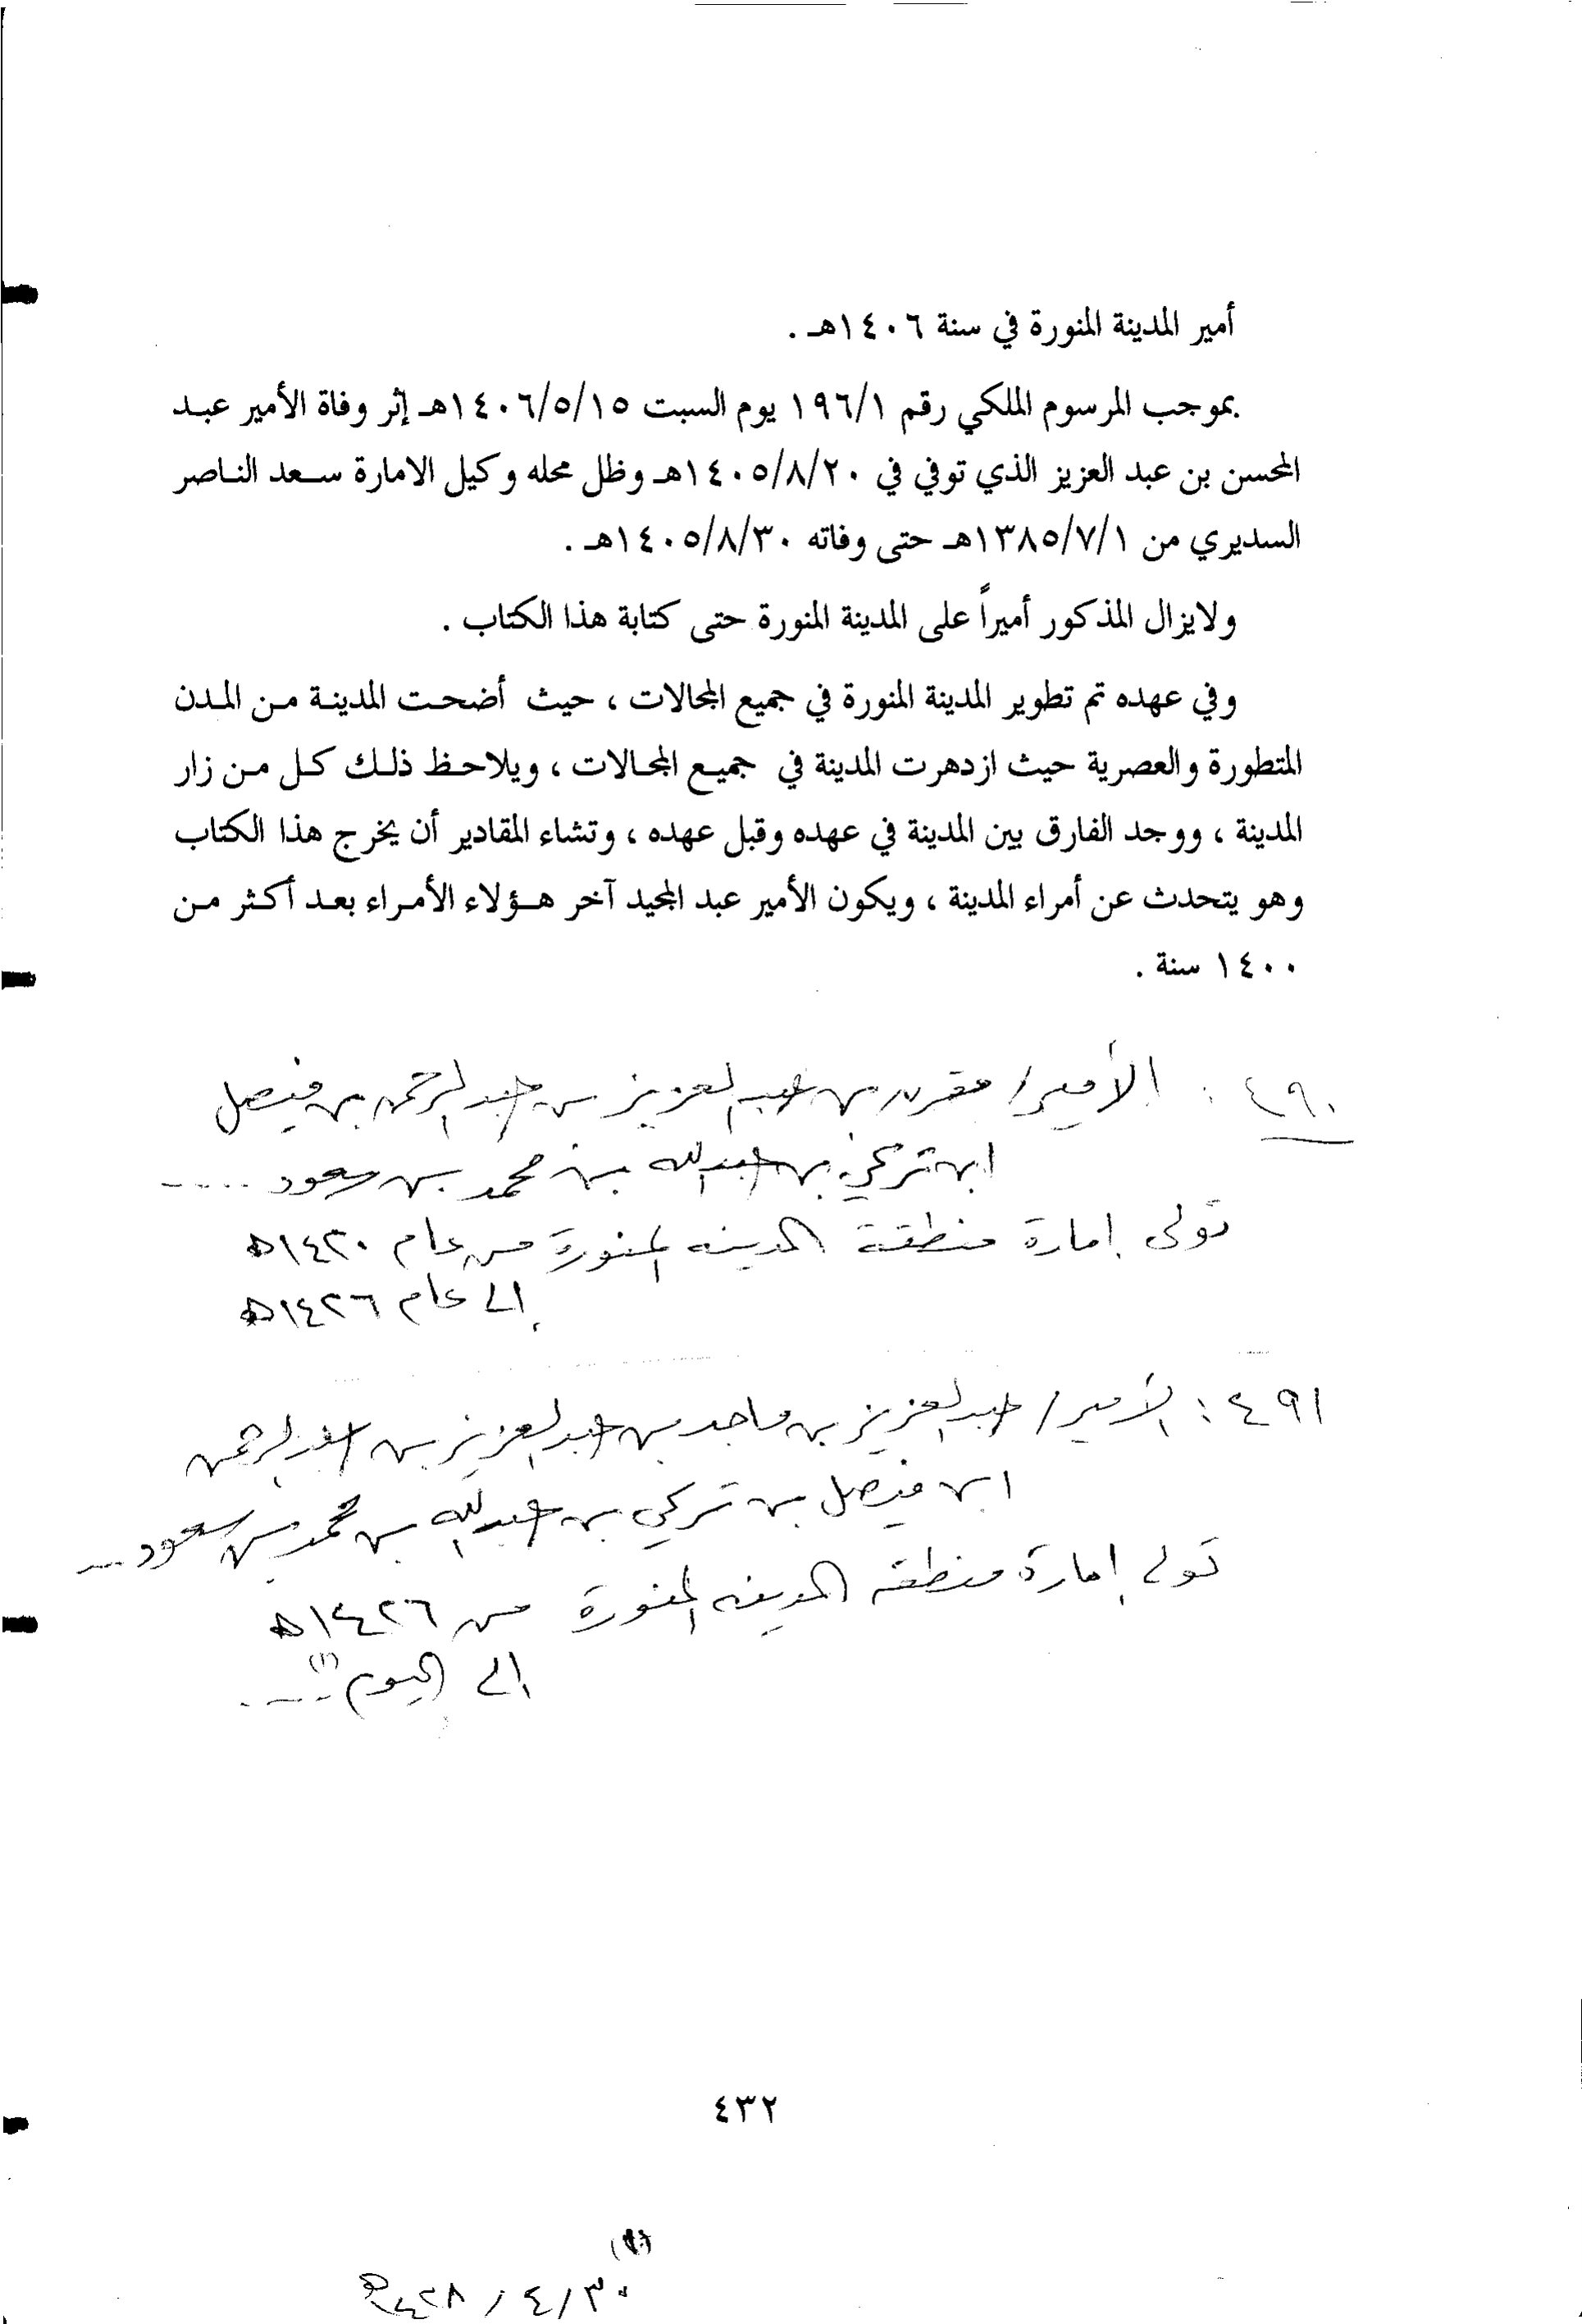 أمير المدينة المنورة في سنة ١٤٠٦هـ .
بموجب المرسوم الملكي رقم ١٩٦/١ يوم السبت ١٤٠٦/٥/١٥هـ إثر وفاة الأمير عبد
المحسن بن عبد العزيز الذي توفي في ١٤٠٥/٨/٢٠هـ وظل محله وكيل الامارة سعد الناصر
السديري من ١٣٨٥/٧/١هـ حتى وفاته ١٤٠٥/٨/٣٠هـ .
ولايزال المذكور أميراً على المدينة المنورة حتى كتابة هذا الكتاب .
وفي عهده تم تطوير المدينة المنورة في جميع المجالات ، حيث أضحت المدينة من المدن
المتطورة والعصرية حيث ازدهرت المدينة في جميع المجالات ، ويلاحظ ذلك كل من زار
المدينة ، ووجد الفارق بين المدينة في عهده وقبل عهده ، وتشاء المقادير أن يخرج هذا الكتاب
وهو يتحدث عن أمراء المدينة ، ويكون الأمير عبد المجيد آخر هؤلاء الأمراء بعد أكثر من
١٤٠٠ سنة .
٤٩٠ : الأمير / مقرن بن عبد العزيز بن عبد الرحمن بن فيصل
ابن تركي بن عبد الله بن محمد بن سعود .....
تولى إمارة منطقة المدينه المنورة من عام ١٤٢٠هـ
إلى عام ١٤٢٦هـ
٤٩١ : الأمير / عبد العزيز بن ماجد بن عبد العزيز بن عبد الرحمن
ابن فيصل بن تركي بن عبد الله بن محمد بن سعود ....
تولى إمارة منطقه المدينه المنورة من ١٤٢٦هـ
إلى اليوم (١) ....
٤٣٢
(١)
٣٠ / ٤ / ١٤٢٨هـ